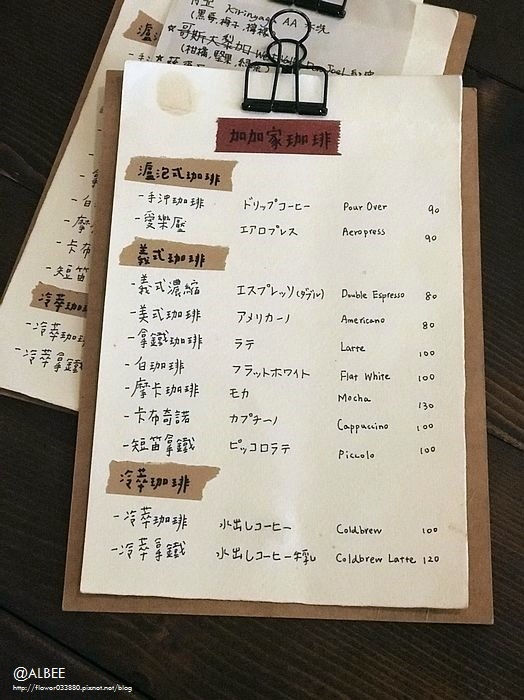 Kiringa AA
(黑馬,梅子,檸檬
★哥斯大黎加
(柑橘,堅果,
加加家珈琲
濾泡式珈琲
-手沖珈琲 ドリップコーヒー Pour Over 90
-愛樂壓 エアロプレス Aeropress 90
義式珈琲
-義式濃縮 エスプレッソ(ダブル) Double Espresso 80
-美式珈琲 アメリカーノ Americano 80
-拿鐵珈琲 ラテ Latte 100
-白珈琲 フラットホワイト Flat White 100
-摩卡珈琲 モカ Mocha 130
-卡布奇諾 カプチーノ Cappuccino 100
-短笛拿鐵 ピッコロラテ Piccolo 100
冷萃珈琲
-冷萃珈琲 水出しコーヒー Coldbrew 100
-冷萃拿鐵 水出しコーヒー牛乳 Coldbrew Latte 120
濾
-手
-白
-摩
-卡
-短笛
冷萃珈
-冷萃珈
-冷萃拿鐵
@ALBEE
http://flower033880.pixnet.net/blog